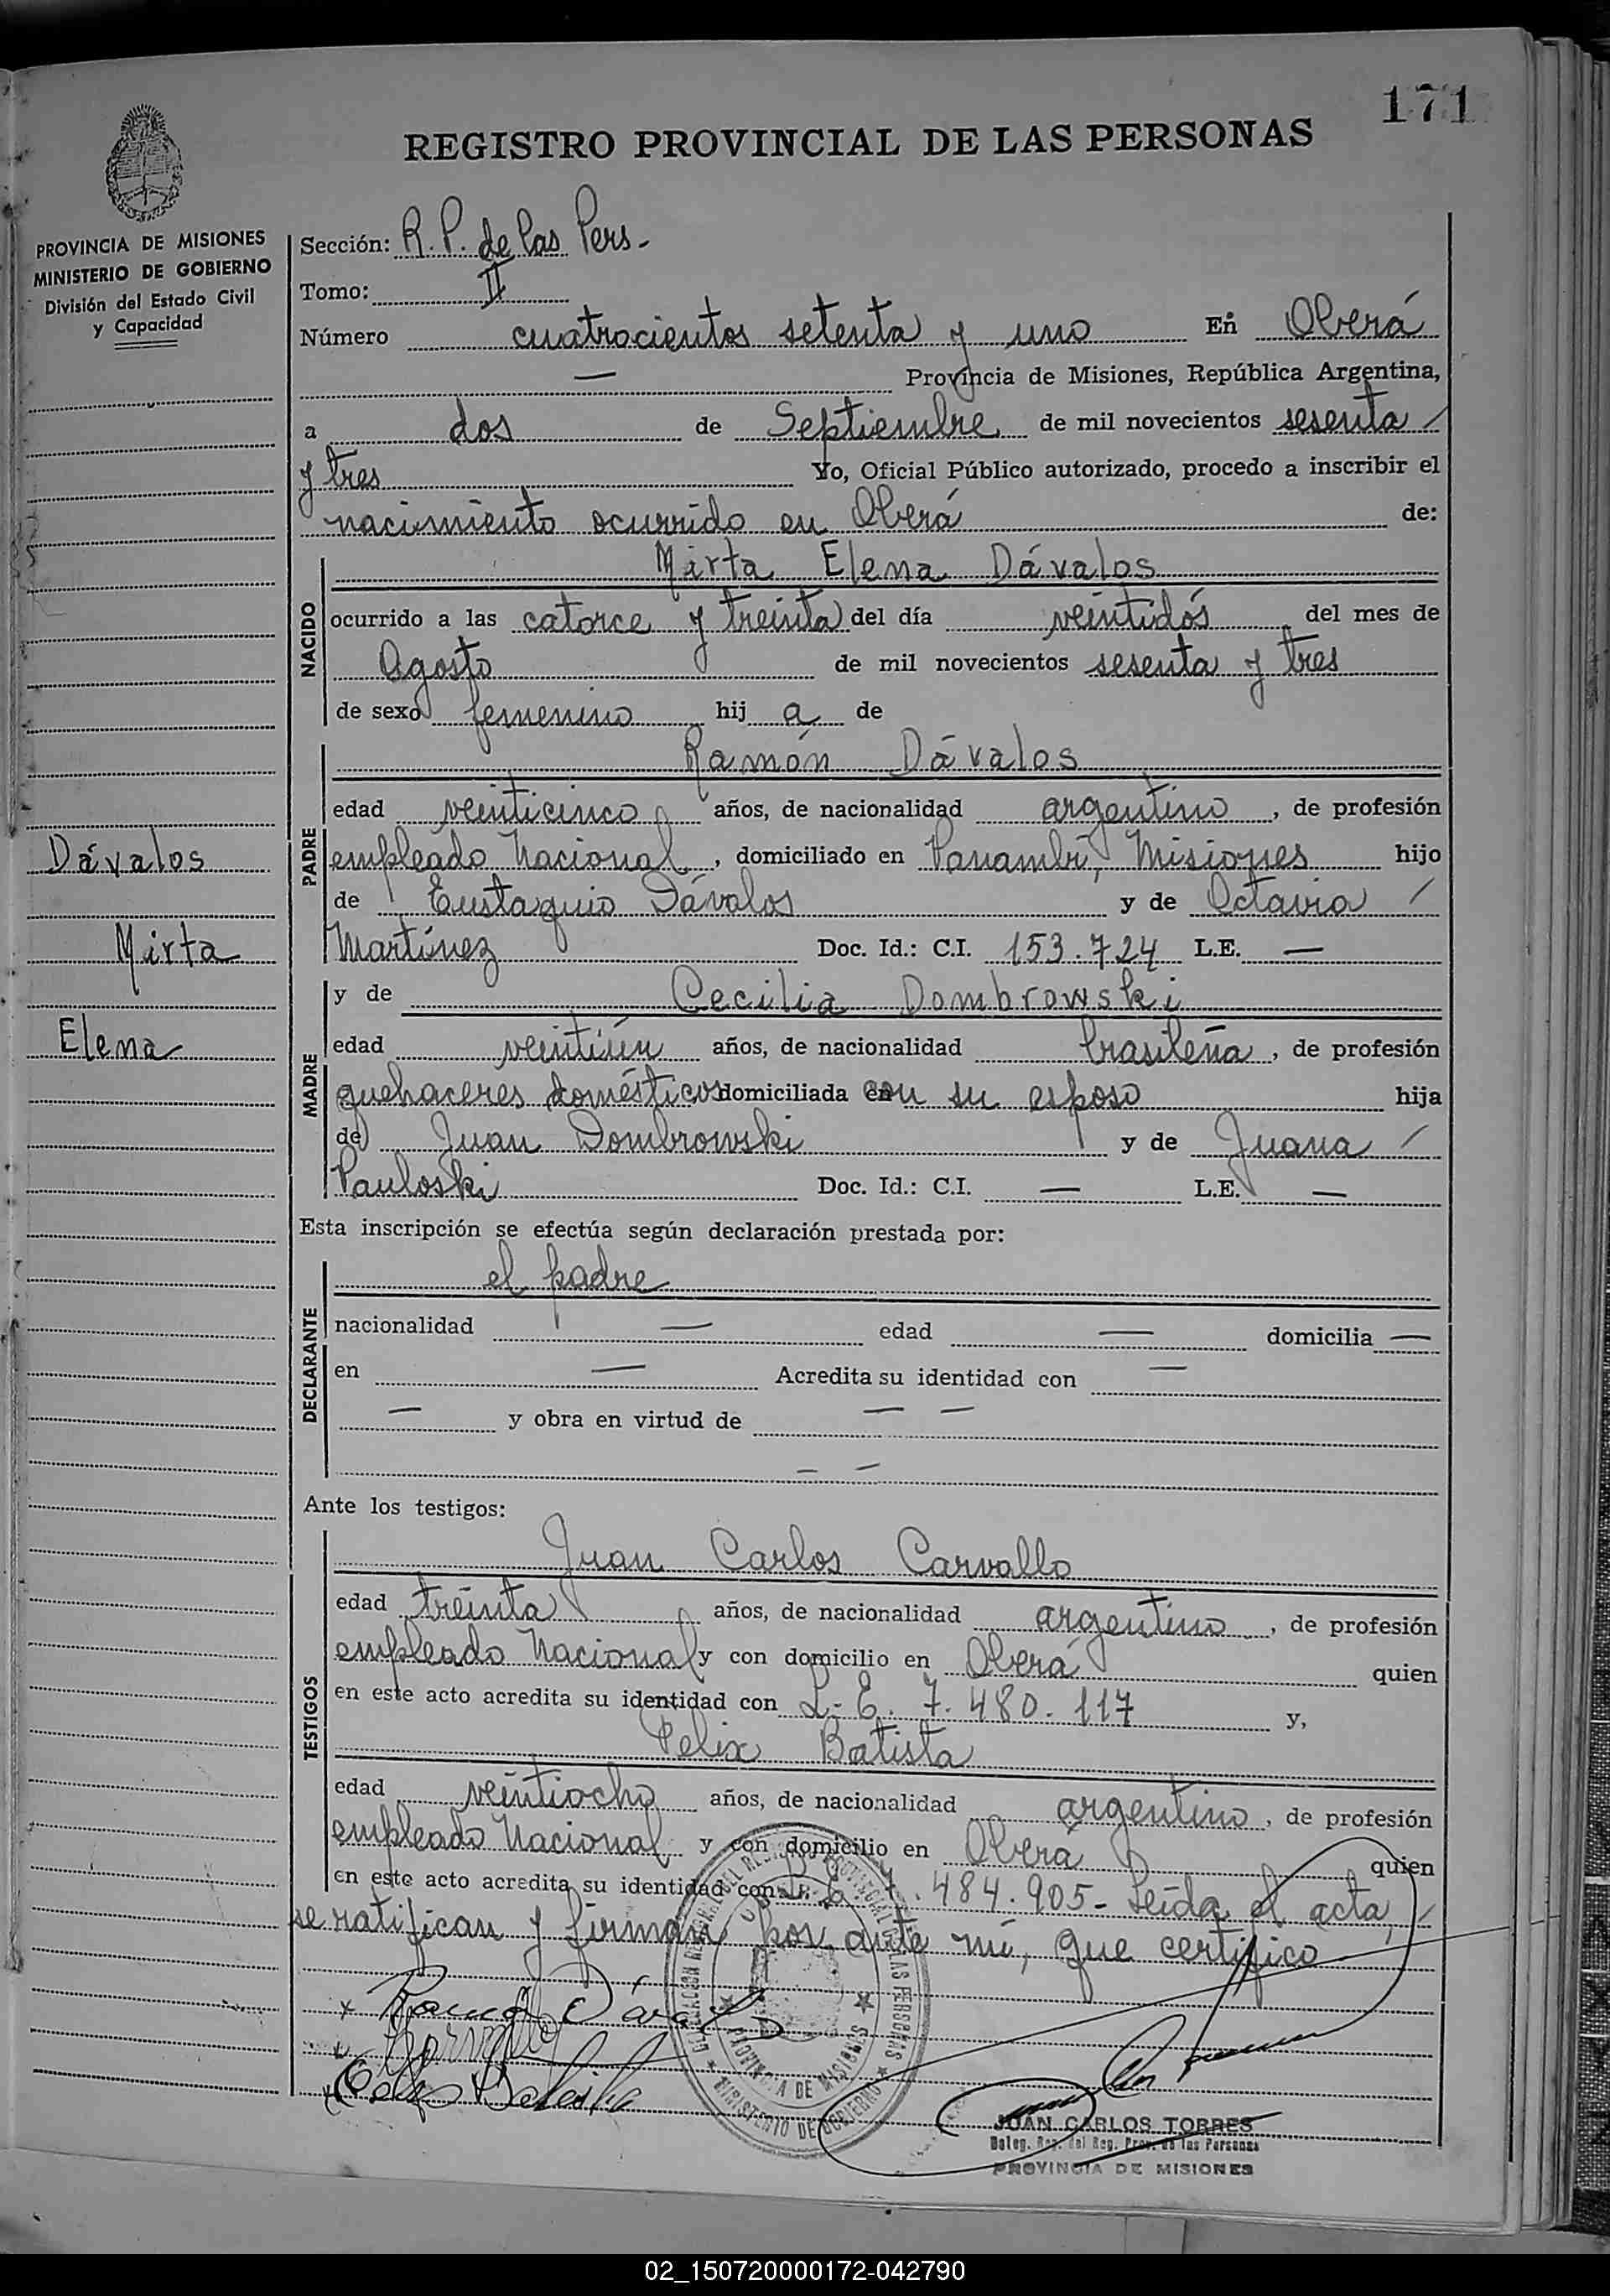 171
REGISTRO PROVINCIAL DE LAS PERSONAS
PROVINCIA DE MISIONES
MINISTERIO DE GOBIERNO
División del Estado Civil
y Capacidad
Sección: R. P. de las Pers.-
Tomo: II
Número cuatrocientos setenta y uno En Oberá
— Provincia de Misiones, República Argentina,
a dos de Septiembre de mil novecientos sesenta
y tres Yo, Oficial Público autorizado, procedo a inscribir el
nacimiento ocurrido en Oberá de:
NACIDO
Mirta Elena Dávalos
ocurrido a las catorce y treinta del día veintidós del mes de
Agosto de mil novecientos sesenta y tres
de sexo femenino hij a de
PADRE
Ramón Dávalos
edad veinticinco años, de nacionalidad argentino, de profesión
empleado Nacional, domiciliado en Panambí, Misiones hijo
de Eustaquio Dávalos y de Octavia
Martínez Doc. Id.: C.I. 153.724 L.E. —
Dávalos
Mirta
Elena
MADRE
y de Cecilia Dombrowski
edad veintiún años, de nacionalidad brasileña, de profesión
quehaceres domésticos domiciliada con su esposo hija
de Juan Dombrowski y de Juana
Pauloski Doc. Id.: C.I. — L.E. —
Esta inscripción se efectúa según declaración prestada por:
DECLARANTE
el padre
nacionalidad — edad — domicilia —
en — Acredita su identidad con —
— y obra en virtud de — —
— —
Ante los testigos:
TESTIGOS
Juan Carlos Carvallo
edad treinta años, de nacionalidad argentino, de profesión
empleado Nacional y con domicilio en Oberá quien
en este acto acredita su identidad con L.E. 7.480.117 y,
Felix Batista
edad veintiocho años, de nacionalidad argentino, de profesión
empleado Nacional y con domicilio en Oberá quien
en este acto acredita su identidad con .484.905- Leída el acta,
se ratifican y firman por ante mí, que certifico
Ramón Dávalos
JUAN CARLOS TORRES
Deleg. Reg. del Reg. Prov. de las Personas
PROVINCIA DE MISIONES
PROVINCIA DE MISIONES
MINISTERIO DE GOBIERNO
02_150720000172-042790